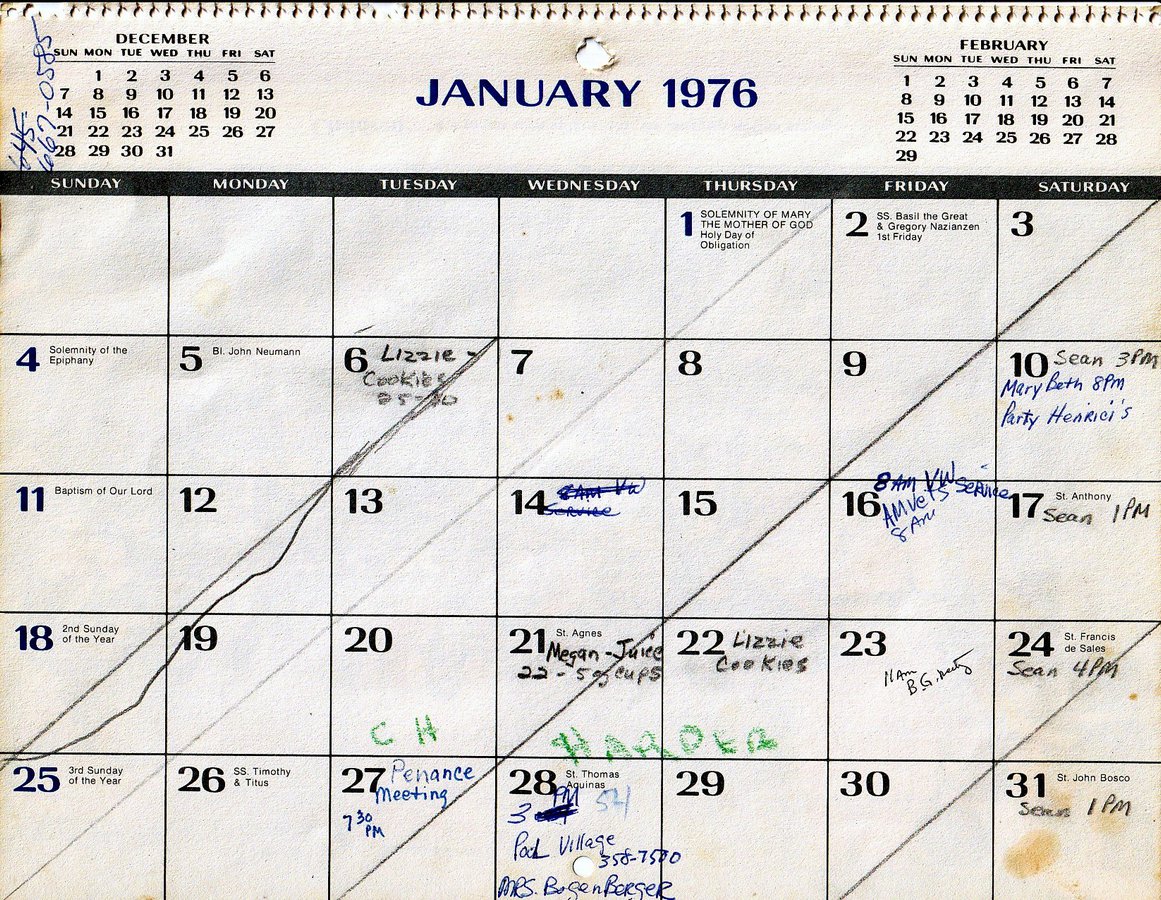 DECEMBER
SUN MON TUE WED THU FRI SAT
1 2 3 4 5 6
7 8 9 10 11 12 13
14 15 16 17 18 19 20
21 22 23 24 25 26 27
28 29 30 31
645-
667-0585
JANUARY 1976
FEBRUARY
SUN MON TUE WED THU FRI SAT
1 2 3 4 5 6 7
8 9 10 11 12 13 14
15 16 17 18 19 20 21
22 23 24 25 26 27 28
29
SUNDAY MONDAY TUESDAY WEDNESDAY THURSDAY FRIDAY SATURDAY
1 SOLEMNITY OF MARY
THE MOTHER OF GOD
Holy Day of
Obligation
2 SS. Basil the Great
& Gregory Nazianzen
1st Friday
3
4 Solemnity of the
Epiphany
5 Bl. John Neumann
6 Lizzie -
Cookies
7
8
9
10 Sean 3PM
Mary Beth 8PM
Party Henrici's
11 Baptism of Our Lord
12
13
14 8AM VW
Service
15
16 8AM VW Service
AMVets
8 AM
17 St. Anthony
Sean 1PM
18 2nd Sunday
of the Year
19
20
21 St. Agnes
Megan - Juice
22 - 5 oz cups
22 Lizzie
Cookies
23
11AM
B.G.
24 St. Francis
de Sales
Sean 4PM
CH HARDER
25 3rd Sunday
of the Year
26 SS. Timothy
& Titus
27 Penance
Meeting
7 30
PM
28 St. Thomas
Aquinas
3 PM 54
Pool Village
358-7500
MRS. BogenBerger
29
30
31 St. John Bosco
Sean 1PM